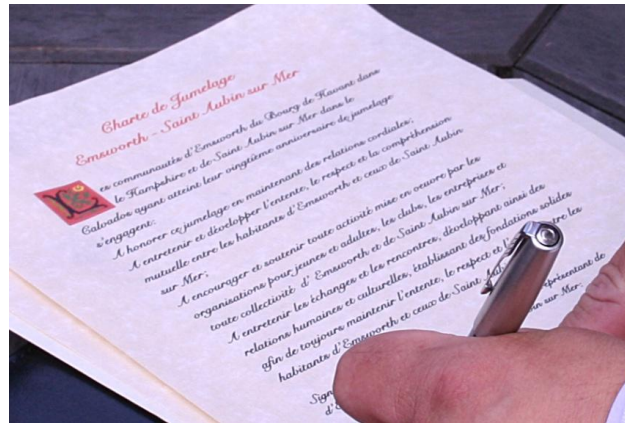 Charte de Jumelage
Emsworth - Saint Aubin sur Mer
Les communautés d'Emsworth du Bourg de Havant dans
le Hampshire et de Saint Aubin sur Mer dans le
Calvados ayant atteint leur vingtième anniversaire de jumelage
s'engagent:
A honorer ce jumelage en maintenant des relations cordiales;
A entretenir et développer l'entente, le respect et la compréhension
mutuelle entre les habitants d'Emsworth et ceux de Saint Aubin
sur Mer;
A encourager et soutenir toute activité mise en oeuvre par les
organisations pour jeunes et adultes, les clubs, les entreprises et
toute collectivité d'Emsworth et de Saint Aubin sur Mer;
A entretenir les échanges et les rencontres, développant ainsi des
relations humaines et culturelles, établissant des fondations solides
afin de toujours maintenir l'entente, le respect et les
habitants d'Emsworth et ceux de Saint
sur Mer;